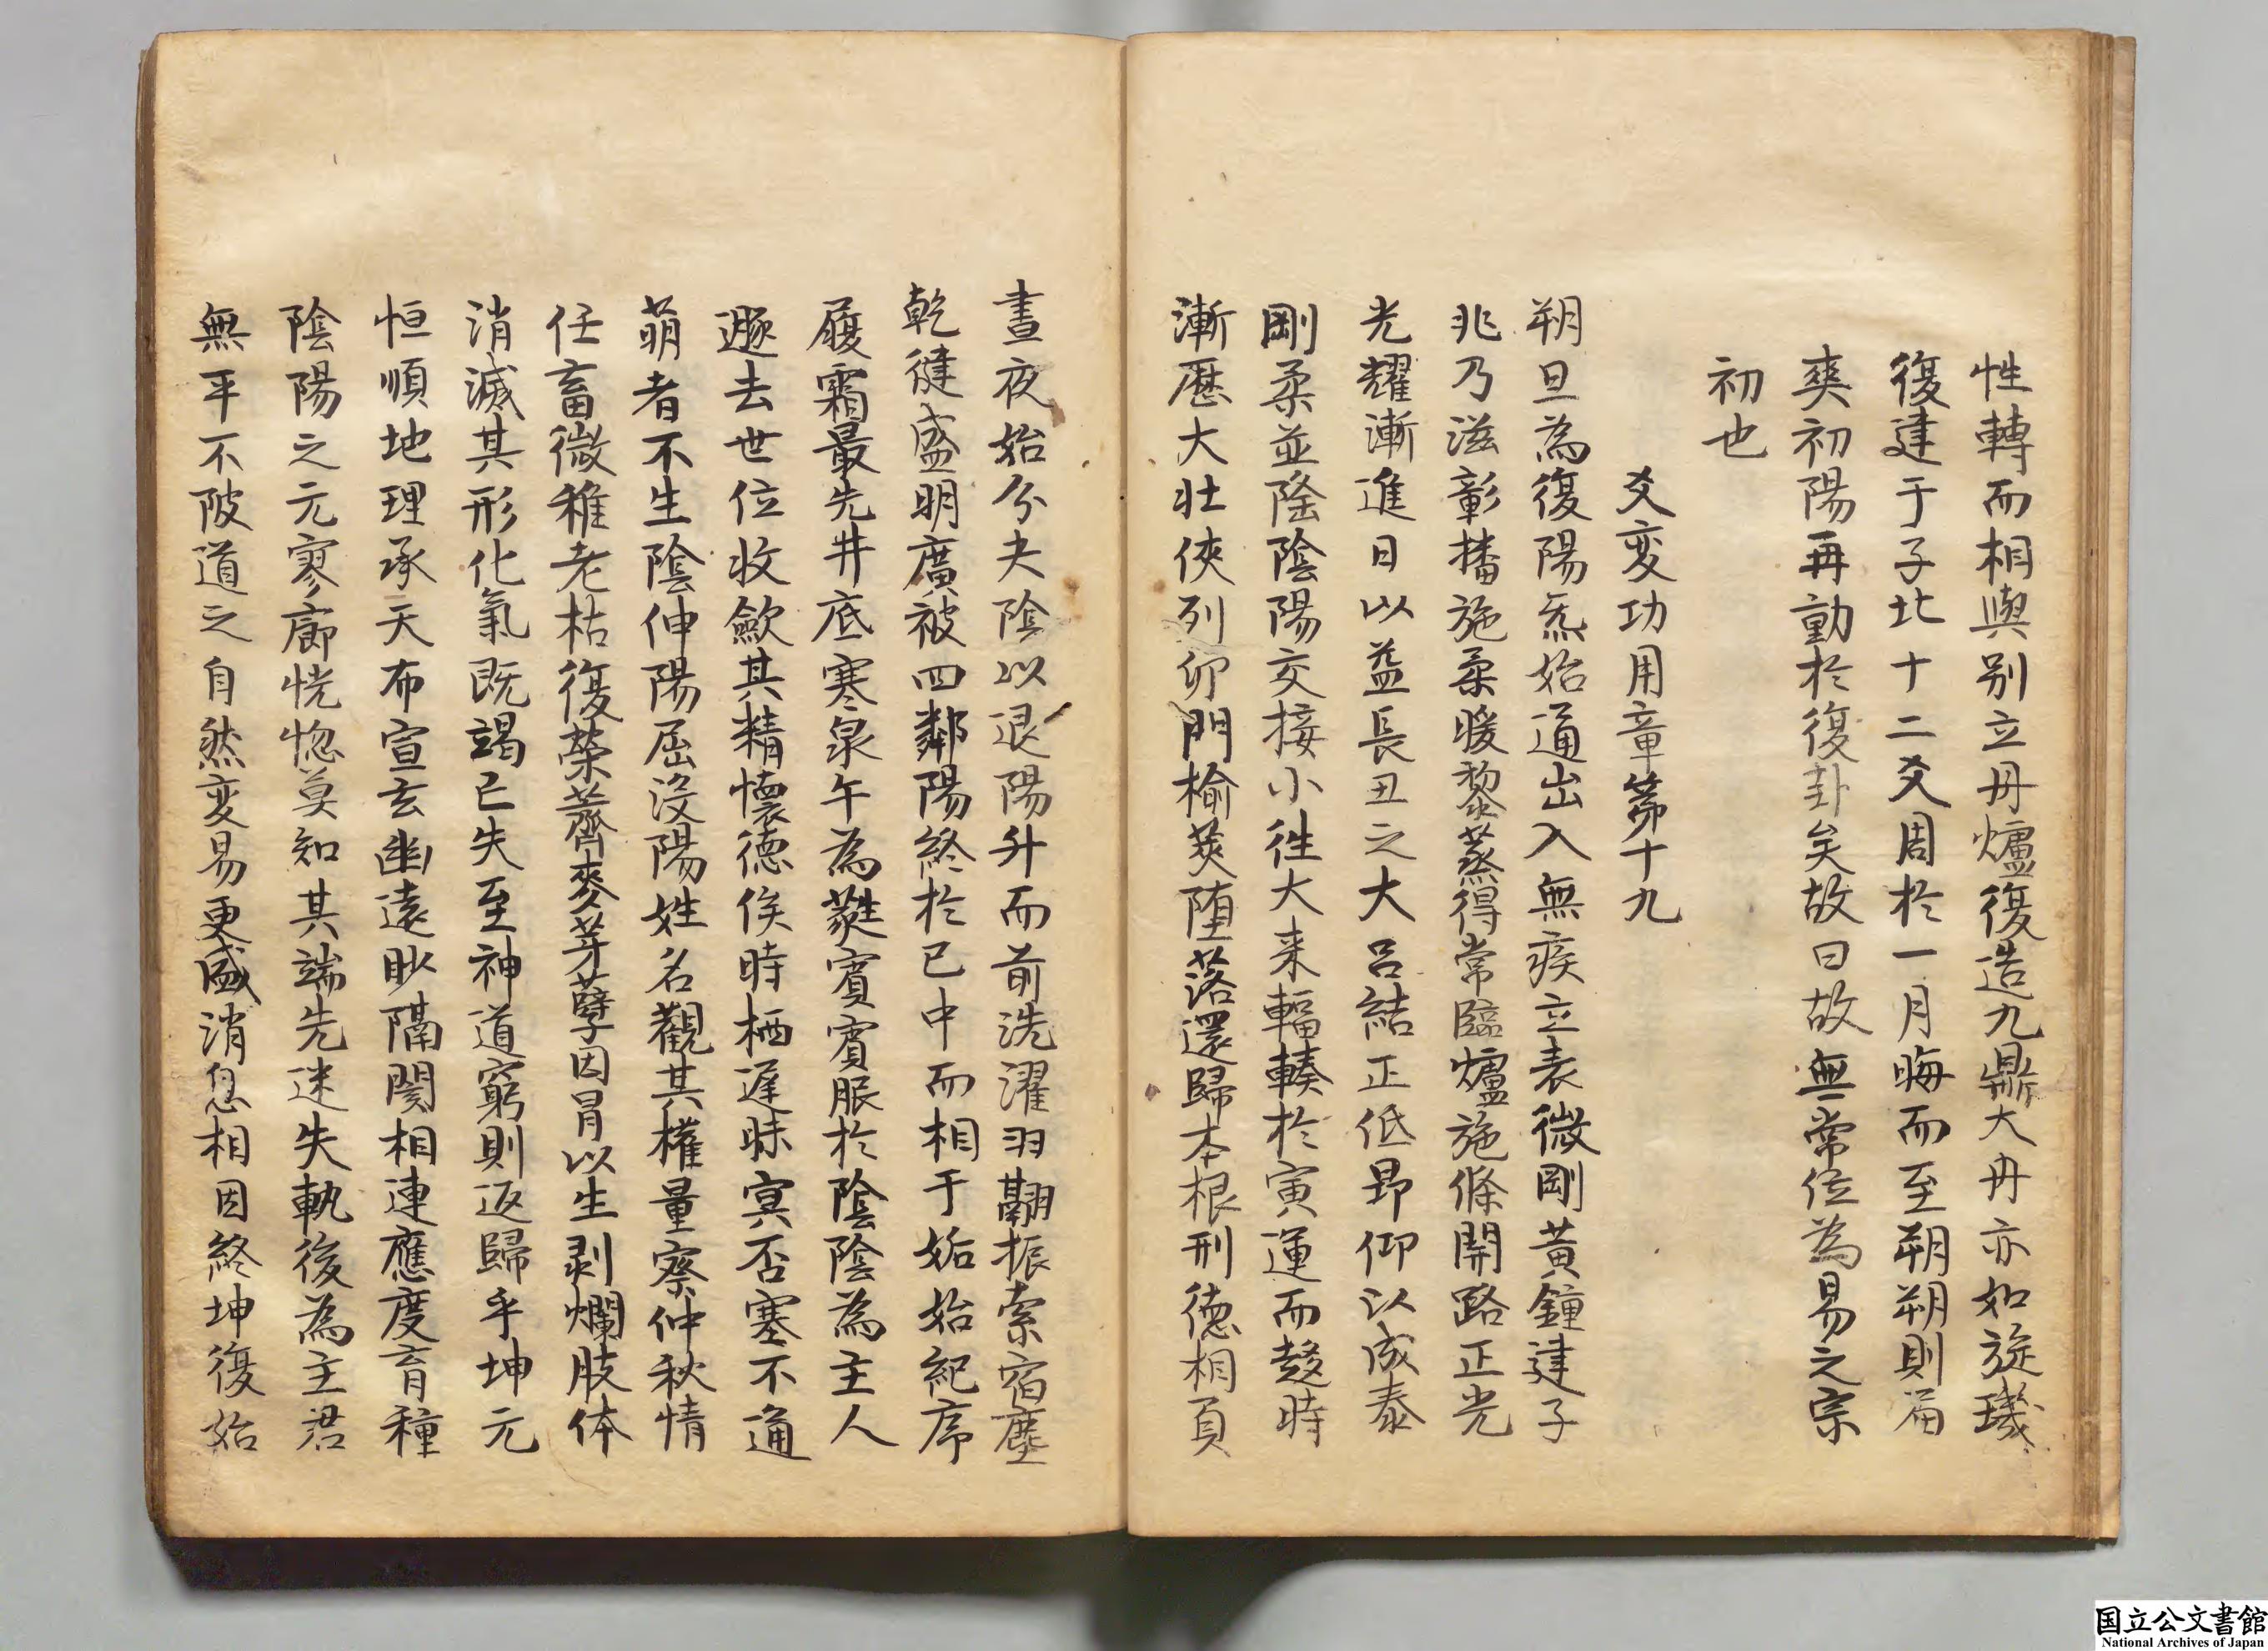 性轉而相與别立丹爐復造九鼎大丹亦如旋璣
復建于子北十二爻周於一月晦而至朔朔則届
爽初陽再動於復卦矣故曰故無常位為易之宗
初也
爻変功用章第十九
朔旦為復陽炁始通出入無疾立表微剛黃鐘建子
兆乃滋彰播施柔暖黎蒸得常臨爐施條開路正光
光耀漸進日以益長丑之大呂結正低昻仰以成泰
剛柔並隆陰陽交接小徃大来輻輳於寅運而趍時
漸歴大壮俠列卯門榆莢堕落還歸本根刑徳相負
晝夜始分夬陰以退陽升而前洗濯羽翮振索宿塵
乾健盛明廣被四鄰陽終於巳中而相干姤始紀序
履霜最先井底寒泉午為蕤賓賓服於陰陰為主人
遯去世位收歛其精懷徳俟時栖遅昧冥否塞不通
萌者不生陰伸陽屈没陽姓名觀其權量察仲秋情
任畜微稚老枯復荣薺麥芽蘖因冐以生剥爛肢体
消滅其形化氣既竭已失至神道窮則返歸乎坤元
恒順地理承天布宣玄幽遠眇隔閡相連應度育種
陰陽之元寥廓恍惚莫知其端先迷失軌後為主君
無平不陂道之自然変易更盛消息相因終坤復始
国立公文書館
National Archives of Japan